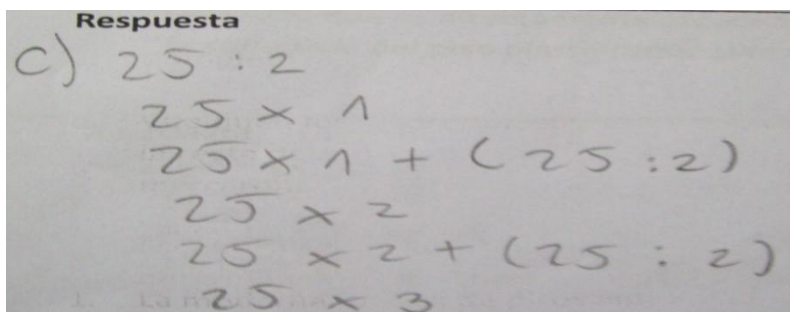 Respuesta
c) 25 : 2
25 x 1
25 x 1 + (25 : 2)
25 x 2
25 x 2 + (25 : 2)
25 x 3